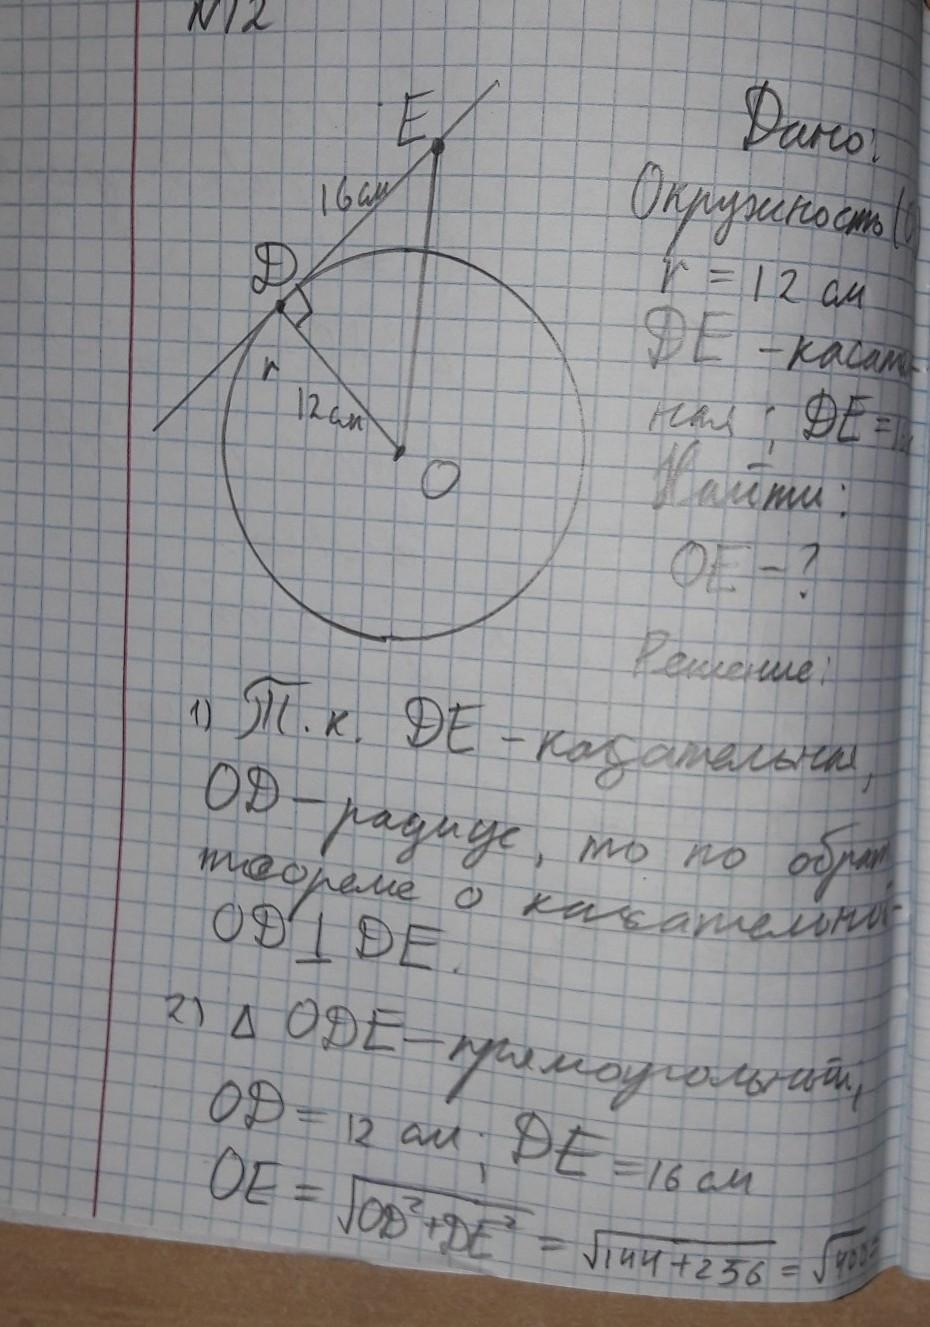 N12
E
Дано:
16 см
Окружность (
D
r = 12 см
DE - касатель-
r
12 см
ная; DE =
O
Найти:
OE - ?
Решение:
1) Т.к. DE - касательная,
OD - радиус, то по обрат
теореме о касательной
OD ⊥ DE.
2) Δ ODE - прямоугольный,
OD = 12 см; DE = 16 см
OE = √OD²+DE² = √144+256 = √400 =